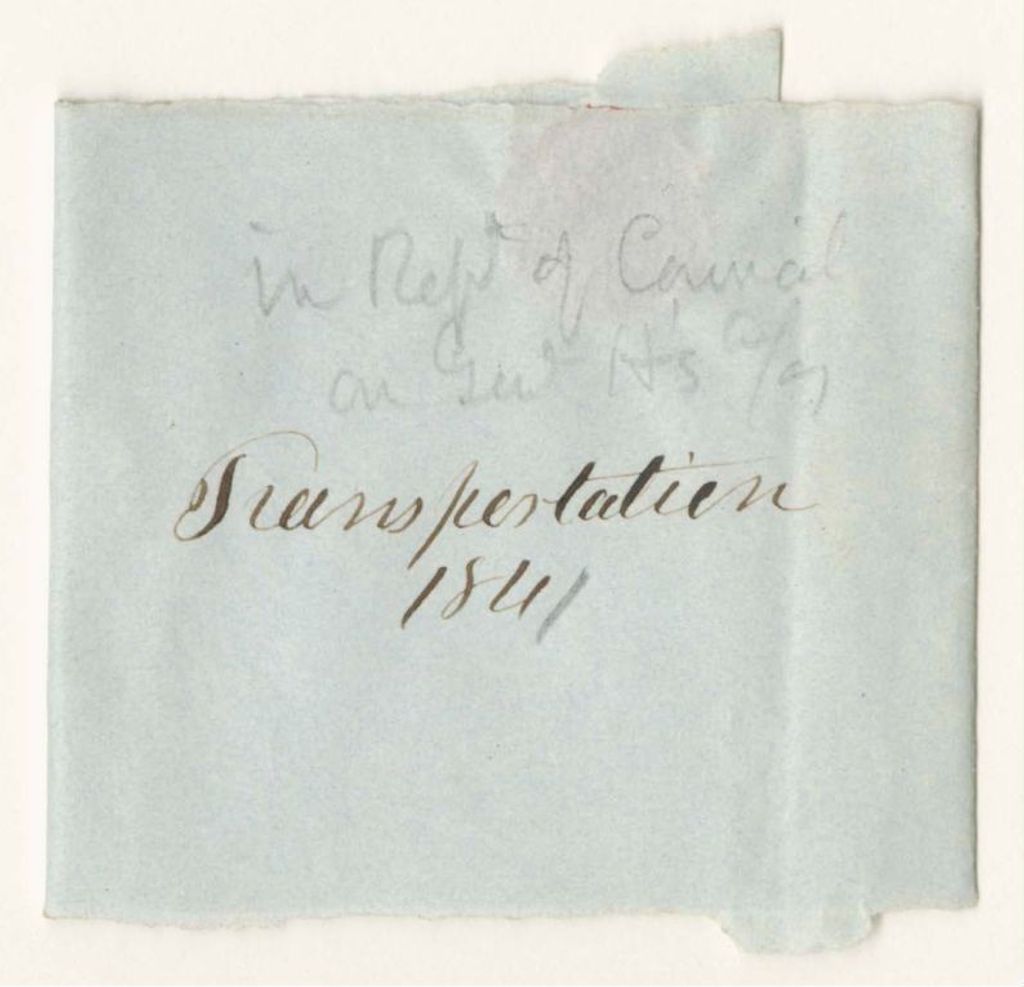 in Rept of Council
on Genl H's a/cs
Transportation
1841